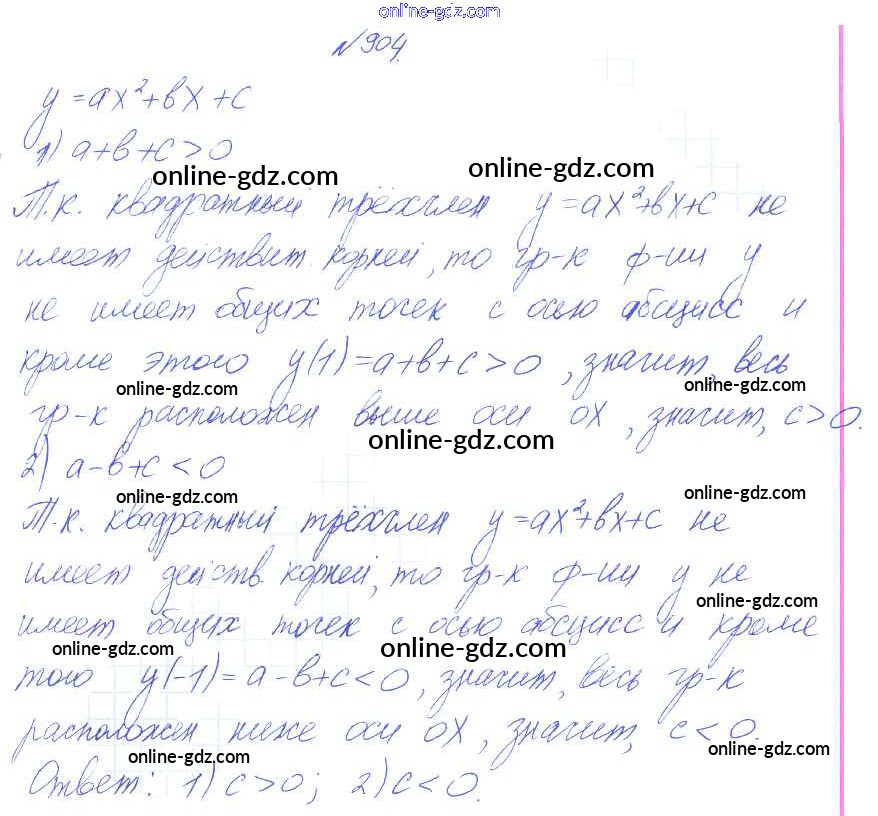 online-gdz.com
№904.
y=ax²+bx+c
1) a+b+c>0
online-gdz.com
online-gdz.com
Т.к. квадратный трёхчлен y=ax²+bx+c не
имеет действит. корней, то гр-к ф-ии y
не имеет общих точек с осью абсцисс и
кроме этого y(1)=a+b+c>0, значит, весь
online-gdz.com
online-gdz.com
гр-к расположен выше оси OX, значит, c>0.
online-gdz.com
2) a-b+c<0
online-gdz.com
online-gdz.com
Т.к. квадратный трёхчлен y=ax²+bx+c не
имеет действ. корней, то гр-к ф-ии y не
online-gdz.com
имеет общих точек с осью абсцисс и кроме
online-gdz.com
online-gdz.com
того y(-1)=a-b+c<0, значит, весь гр-к
расположен ниже оси OX, значит, c<0.
online-gdz.com
online-gdz.com
Ответ: 1) c>0; 2) c<0.